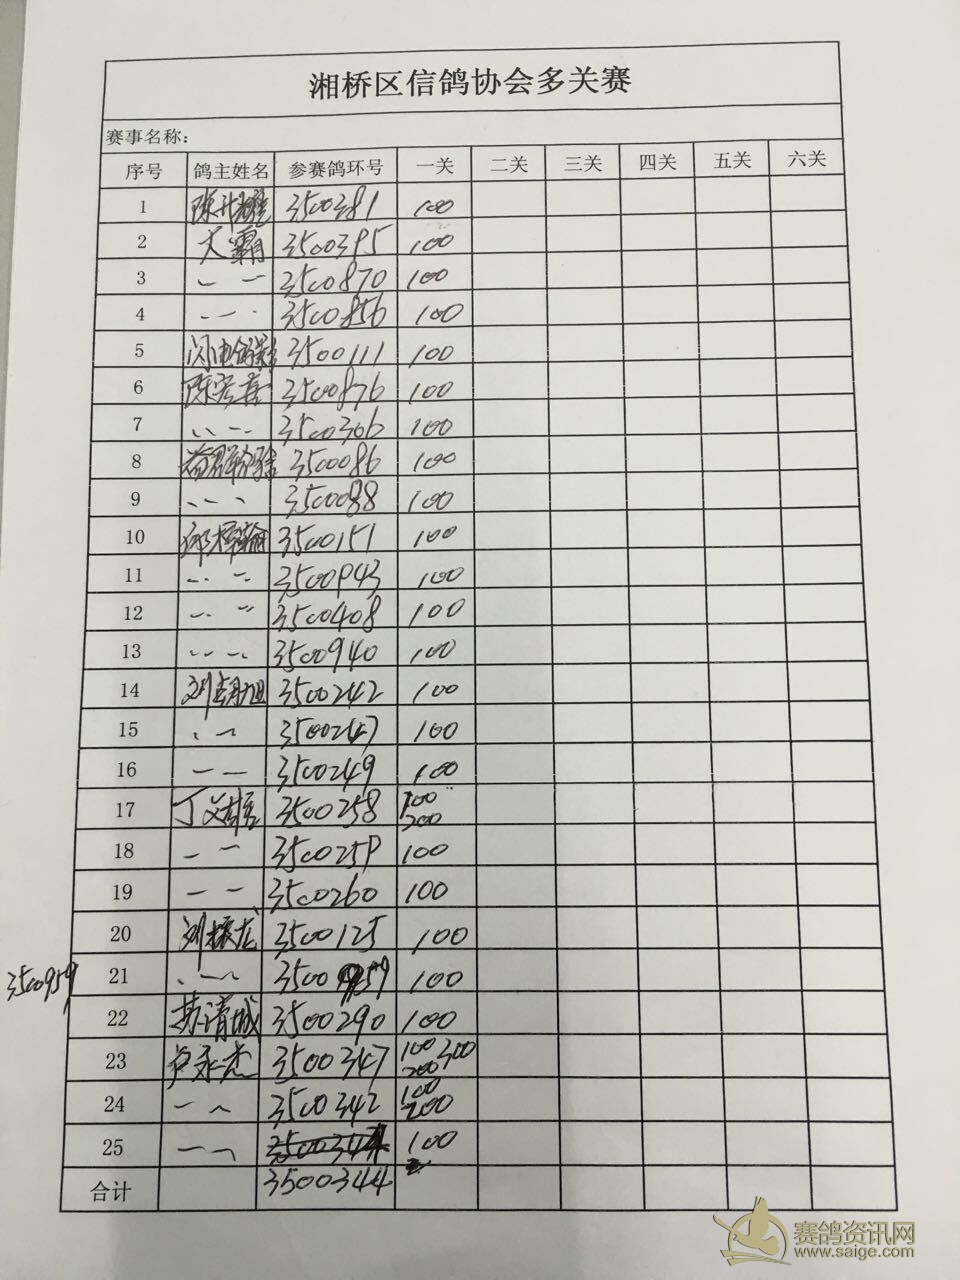 湘桥区信鸽协会多关赛
赛事名称:
序号 鸽主姓名 参赛鸽环号 一关 二关 三关 四关 五关 六关
1 陈升耀 3500381 100
2 大霸 3500395 100
3 〃 3500870 100
4 〃 3500856 100
5 闪电鸽舍 3500111 100
6 陈宏喜 3500876 100
7 〃 3500306 100
8 3500086 100
9 〃 3500088 100
10 3500151 100
11 〃 3500943 100
12 〃 3500408 100
13 〃 3500940 100
14 刘朝旭 3500242 100
15 〃 3500247 100
16 〃 3500249 100
17 丁文雄 3500258 100 200
18 〃 3500259 100
19 〃 3500260 100
20 刘振龙 3500125 100
3500959 21 〃 3500959 100
22 苏清城 3500290 100
23 卢永杰 3500347 100 200 300
24 〃 3500342 100 200
25 〃 100
合计 3500344
赛鸽资讯网
www.saige.com